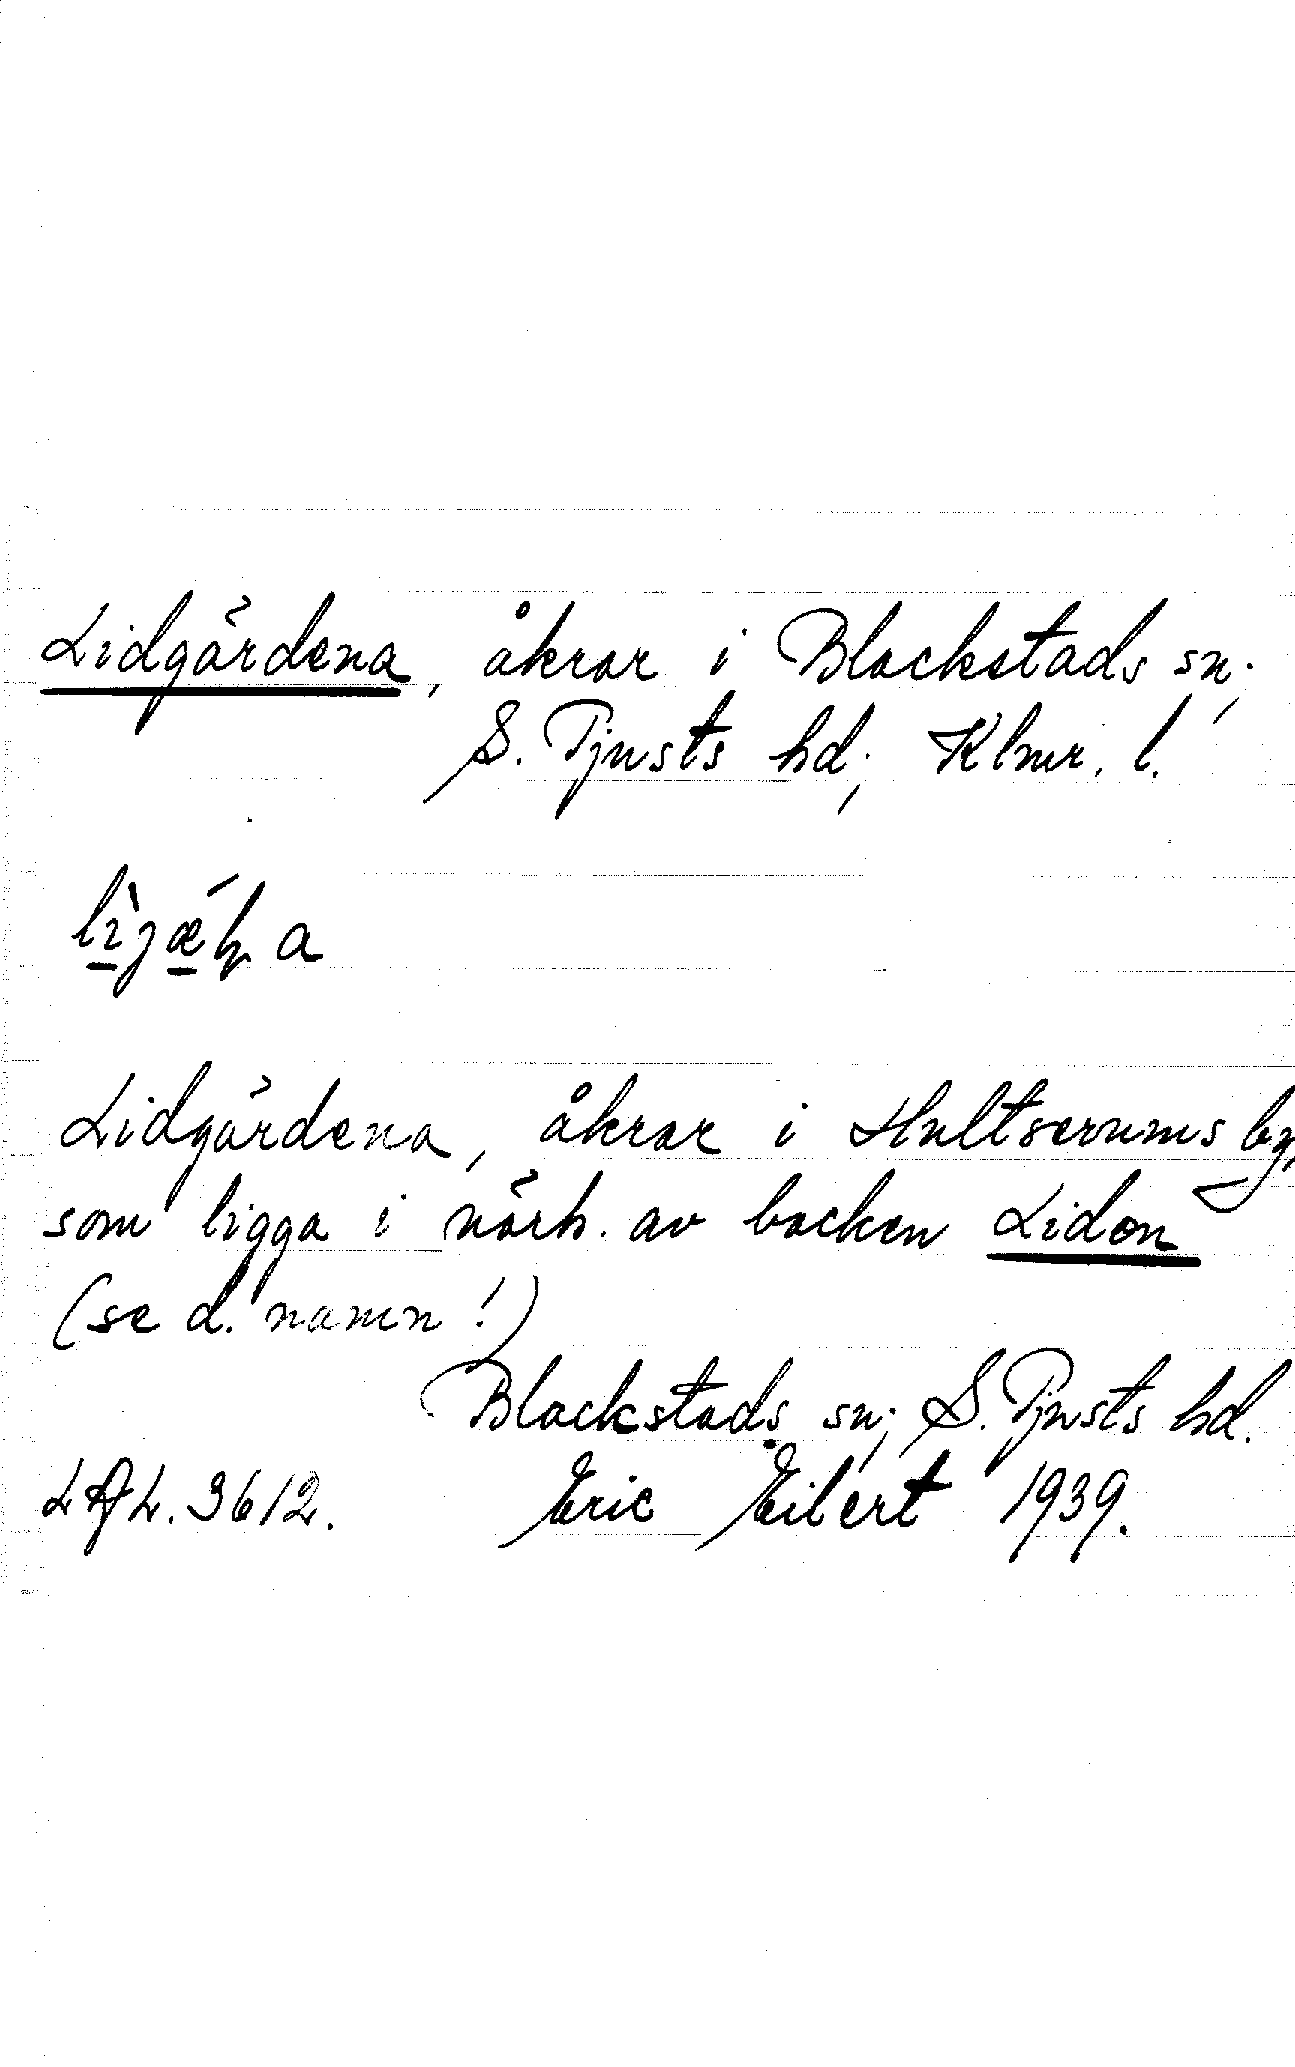 Lidgärdena, åkrar i Blackstads sn;
S. Tjusts hd; Klmr. l.
Lidgärdena, åkrar i Hultserums by,
som ligga i närh. av backen Liden
(se d. namn!)
Blackstads sn; S. Tjusts hd.
3612. Eric Eilert 1939.